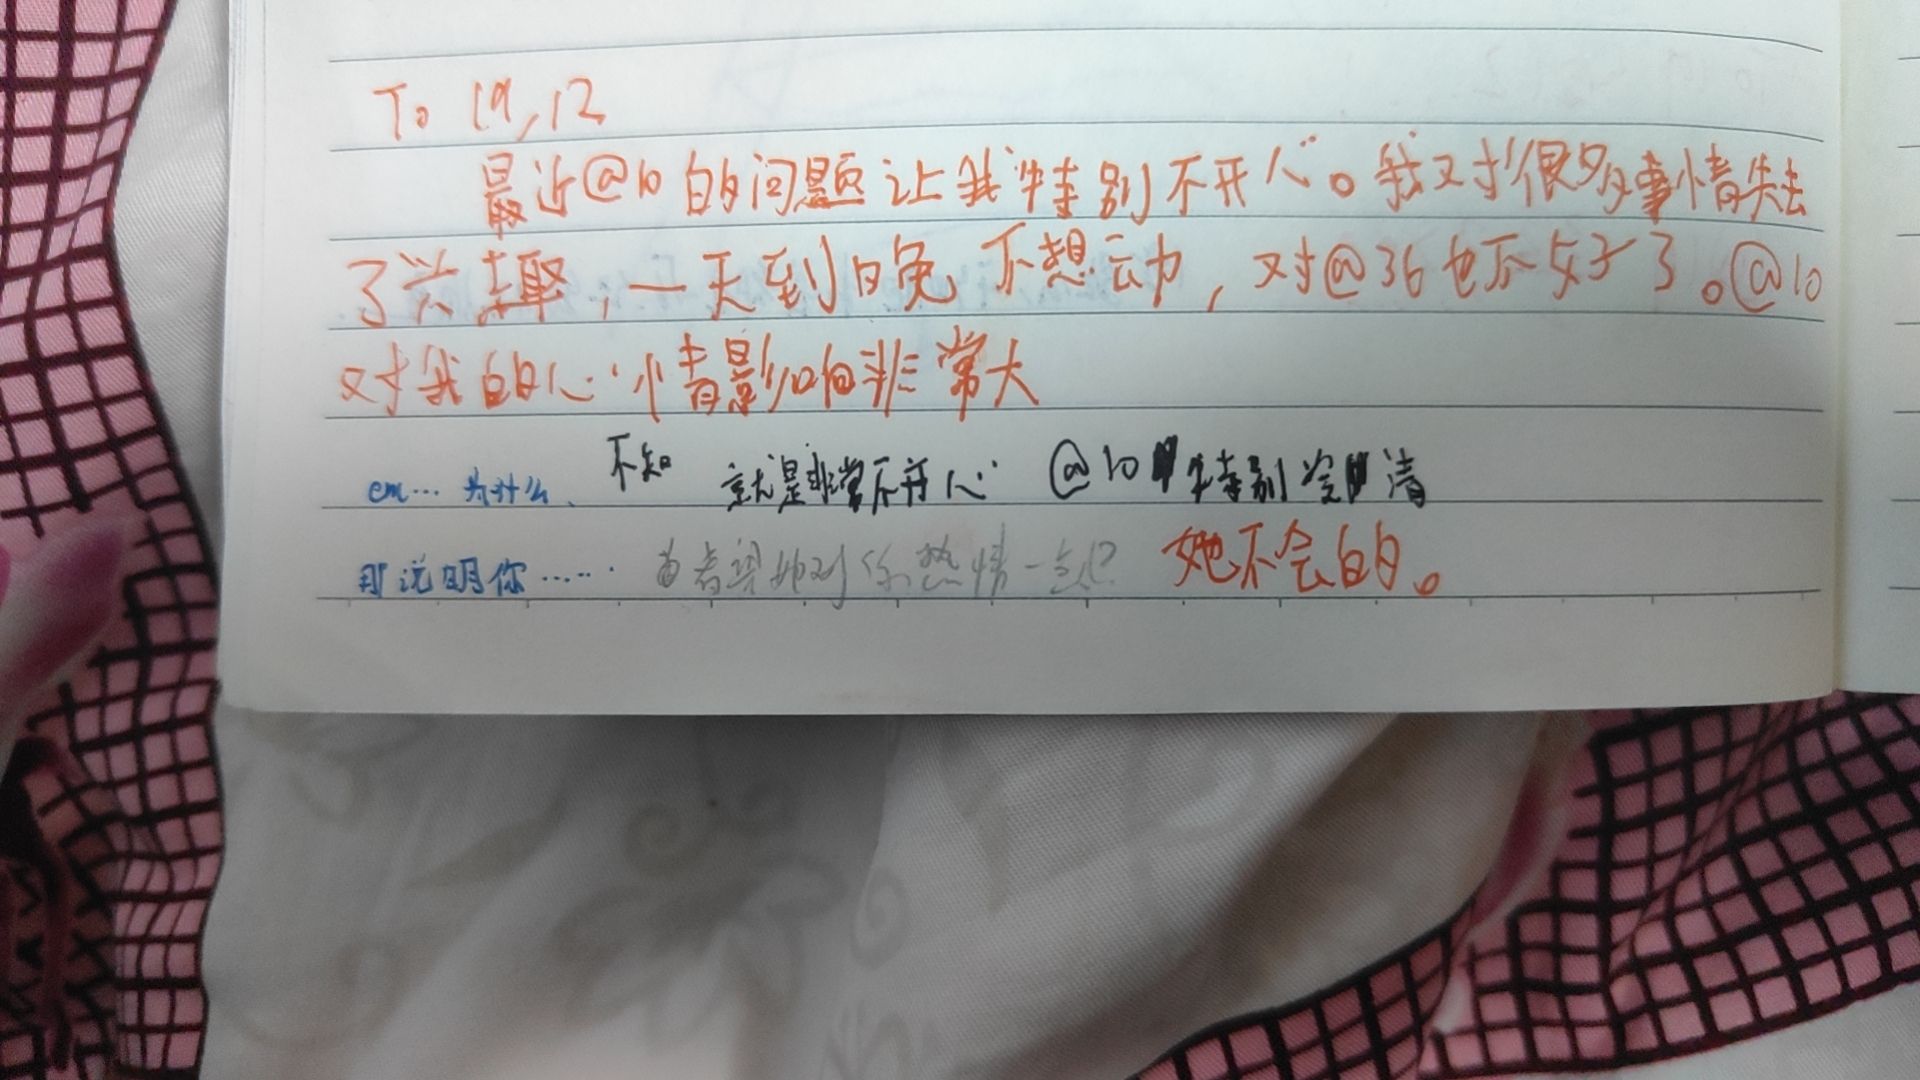 To 19,12
最近@10的问题让我特别不开心。我又对很多事情失去
了兴趣，一天到晚不想动，对@36也不好了。@10
对我的心情影响非常大
em... 为什么、 不知 就是非常不开心 @10特别冷清
那说明你...... 她对你热情一点 她不会的。